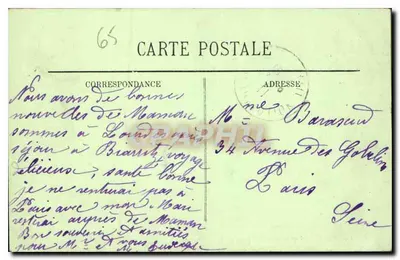 65
CARTE POSTALE
CORRESPONDANCE
ADRESSE
Nous avons de bonnes
nouvelles de Maman
sommes à
séjour à Biarritz voyage
délicieux, santé bonne
je ne rentrai pas à
Paris avec mon Mari
restrai auprès de Maman
Bon souvenir et amitiés
pour Mr et vous
Mme
34 Avenue des Gobelins
Paris
Seine